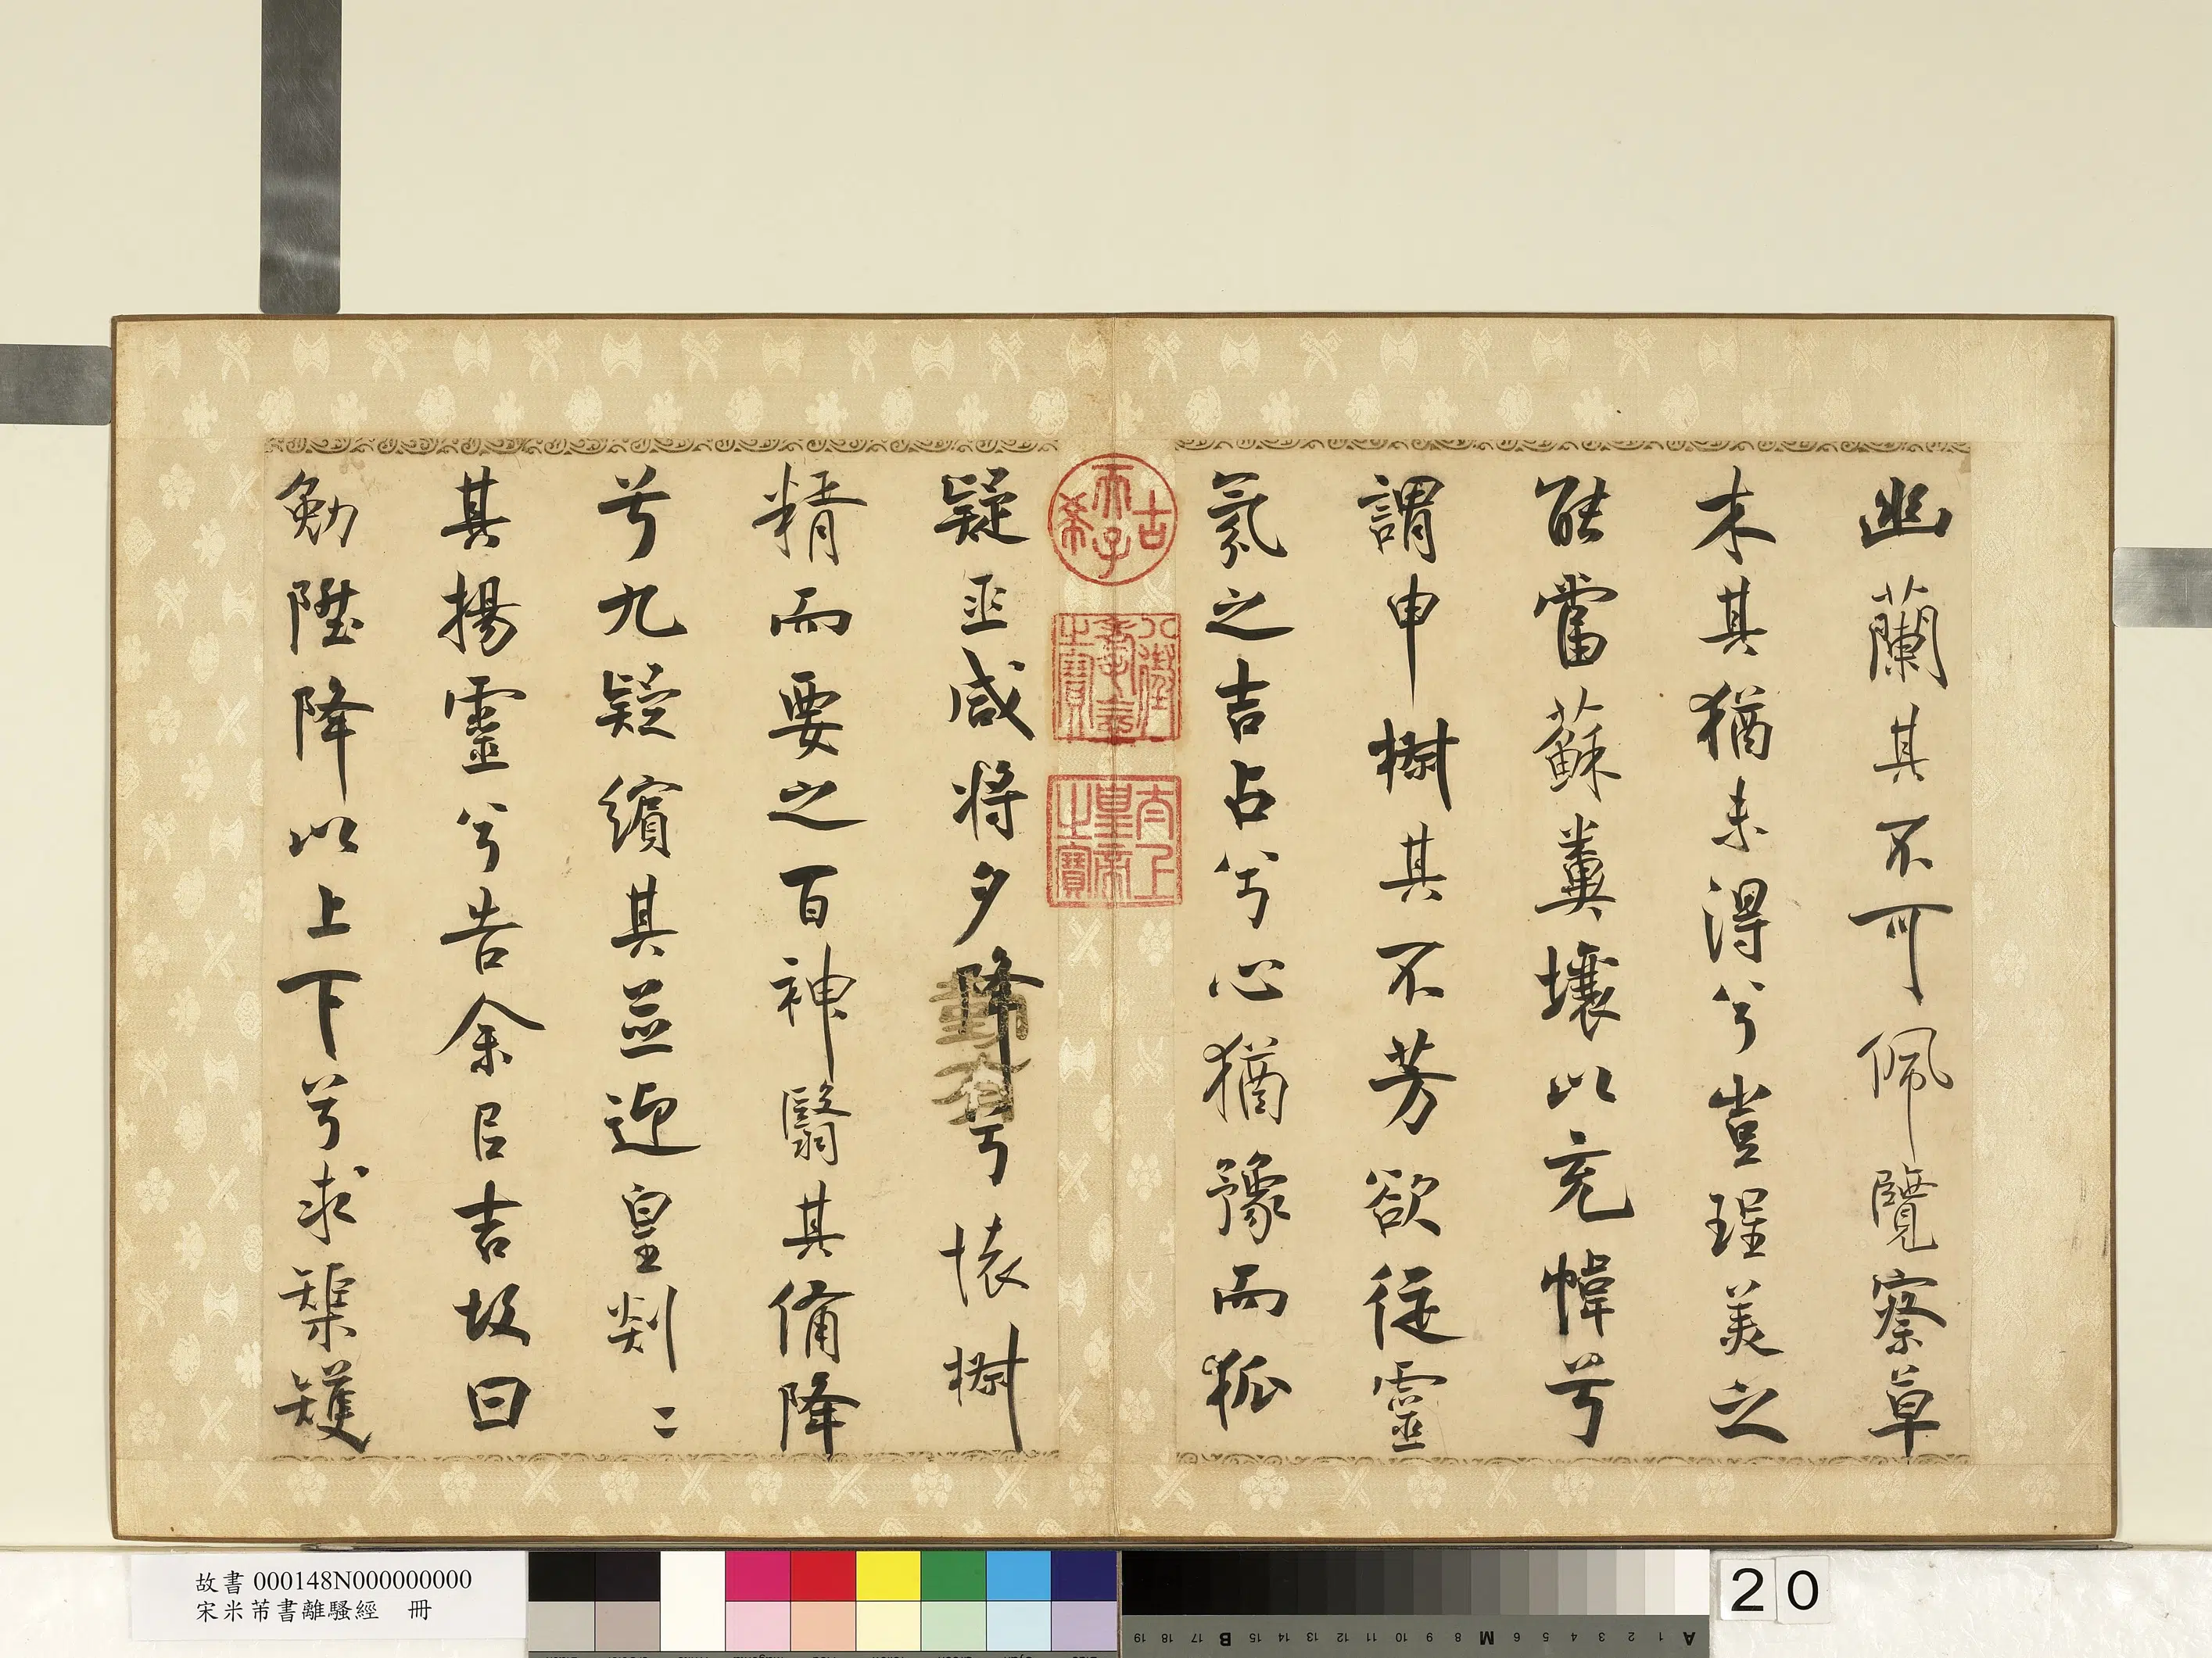 幽蘭其不可佩覽察草
木其猶未得兮豈珵美之
能當蘇糞壤以充幃兮
謂申椒其不芳欲從靈
氛之吉占兮心猶豫而狐
疑巫咸將夕降兮懷椒
精而要之百神翳其備降
兮九疑繽其並迎皇剡〻
其揚靈兮告余以吉故曰
勉陞降以上下兮求榘矱
古希天子
八徵耄念之寶
太上皇帝之寶
故書 000148N000000000
宋米芾書離騷經 冊
20
A 1 2 3 4 5 6 M 8 9 10 11 12 13 14 15 B 17 18 19